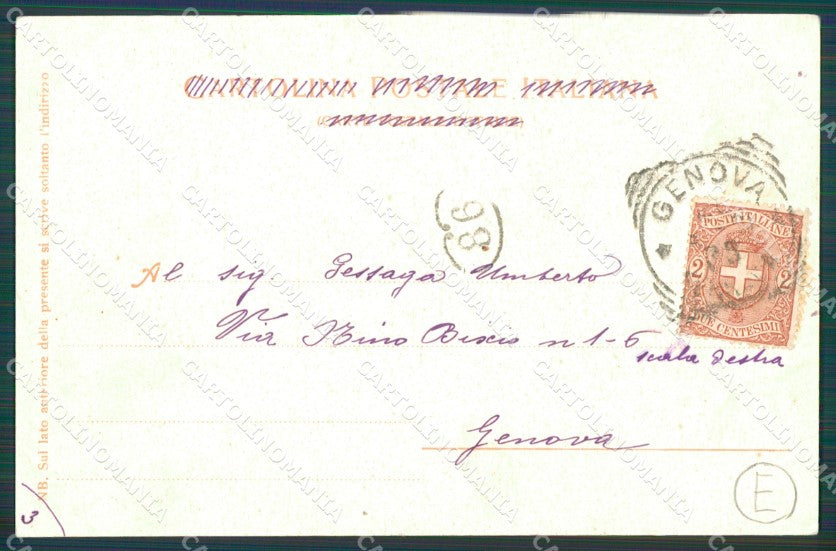 CARTOLINA POSTALE ITALIANA
GENOVA
POSTE ITALIANE
2 2
CENTESIMI
98
Al sig Pessaga Umberto
Via Nino Bixio n 1-6
scala destra
Genova
NB. Sul lato anteriore della presente si scrive soltanto l'indirizzo
3
E
CARTOLINOMANIA